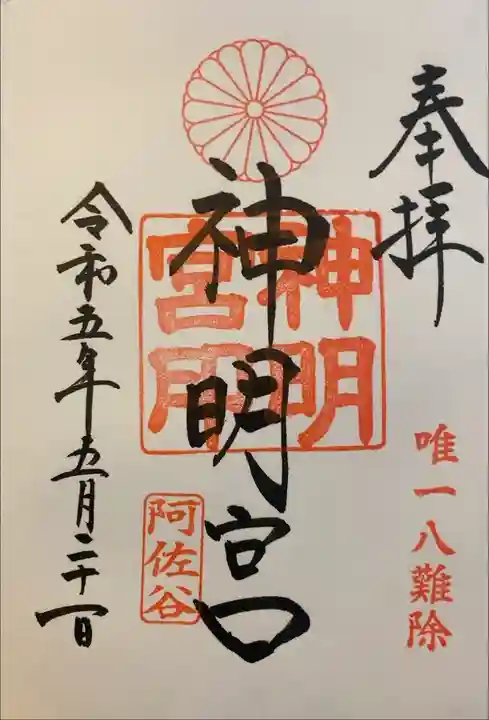 奉拝
唯一八難除
神明宮
神明宮印
阿佐谷
令和五年五月二十一日